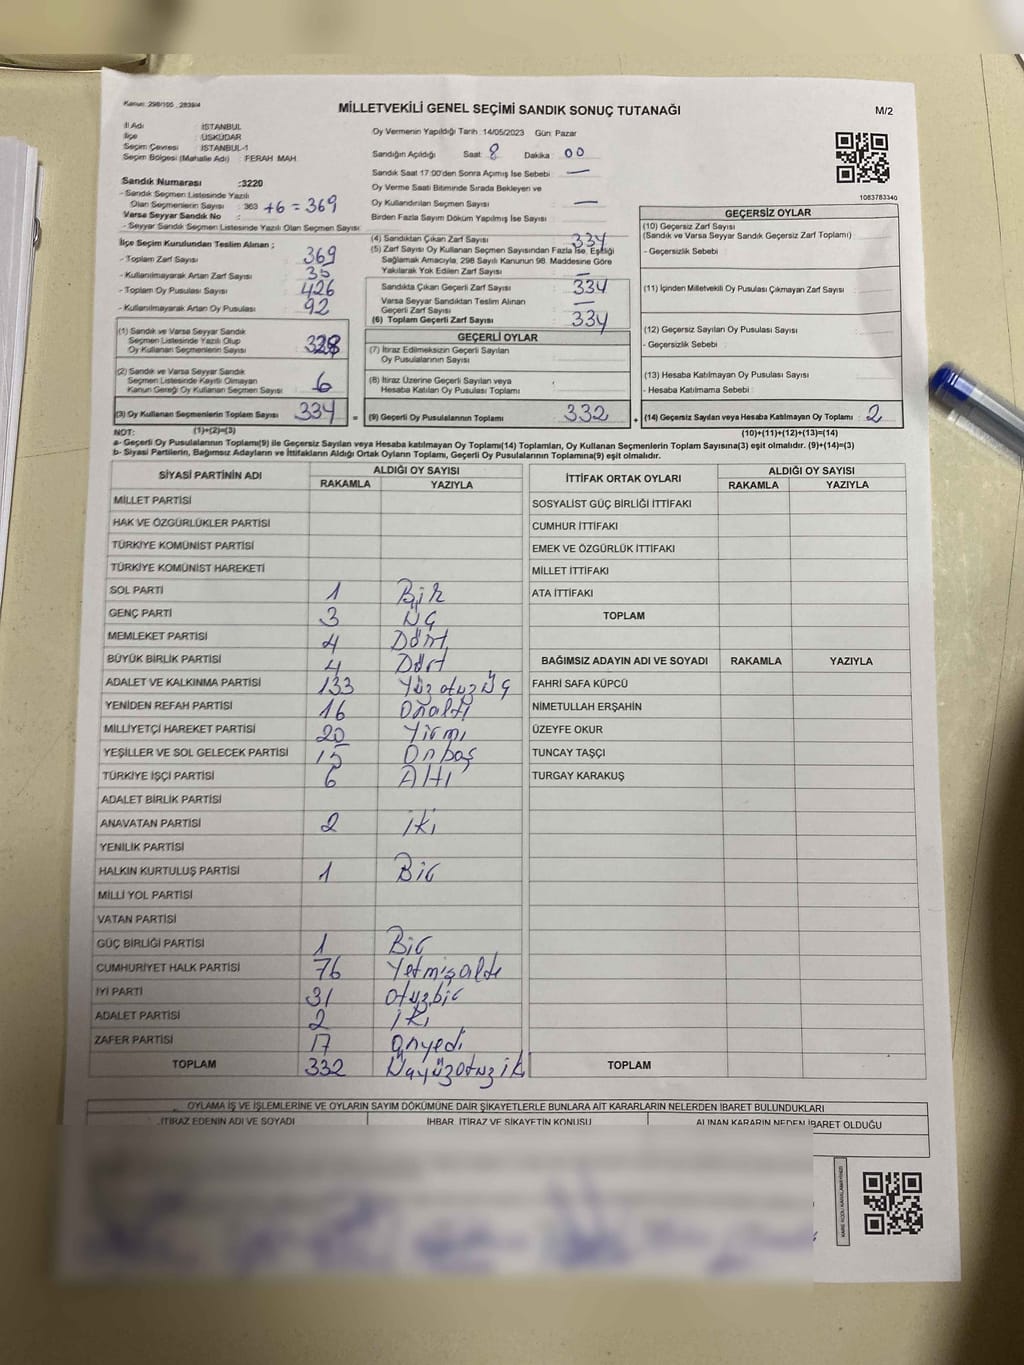 Kanun :298/105 _2839/4
MİLLETVEKİLİ GENEL SEÇİMİ SANDIK SONUÇ TUTANAĞI
M/2
İl Adı : İSTANBUL
İlçe : ÜSKÜDAR
Seçim Çevresi : İSTANBUL-1
Seçim Bölgesi (Mahalle Adı) : FERAH MAH.
Oy Vermenin Yapıldığı Tarih :14/05/2023 Gün: Pazar
Sandığın Açıldığı Saat: 8 Dakika : 00
Sandık Saat 17:00'den Sonra Açılmış İse Sebebi : —
Oy Verme Saati Bitiminde Sırada Bekleyen ve
Oy Kullandırılan Seçmen Sayısı : —
Birden Fazla Sayım Döküm Yapılmış İse Sayısı :
1083783340
Sandık Numarası :3220
- Sandık Seçmen Listesinde Yazılı
Olan Seçmenlerin Sayısı : 363 +6 = 369
Varsa Seyyar Sandık No :
- Seyyar Sandık Seçmen Listesinde Yazılı Olan Seçmen Sayısı :
İlçe Seçim Kurulundan Teslim Alınan ;
- Toplam Zarf Sayısı : 369
- Kullanılmayarak Artan Zarf Sayısı : 35
- Toplam Oy Pusulası Sayısı : 426
- Kullanılmayarak Artan Oy Pusulası : 92
(1) Sandık ve Varsa Seyyar Sandık
Seçmen Listesinde Yazılı Olup
Oy Kullanan Seçmenlerin Sayısı : 328
(2) Sandık ve Varsa Seyyar Sandık
Seçmen Listesinde Kayıtlı Olmayan
Kanun Gereği Oy Kullanan Seçmen Sayısı : 6
(3) Oy Kullanan Seçmenlerin Toplam Sayısı : 334 =
(4) Sandıktan Çıkan Zarf Sayısı : 334
(5) Zarf Sayısı Oy Kullanan Seçmen Sayısından Fazla İse, Eşitliği
Sağlamak Amacıyla; 298 Sayılı Kanunun 98. Maddesine Göre
Yakılarak Yok Edilen Zarf Sayısı : —
Sandıkta Çıkan Geçerli Zarf Sayısı : 334
Varsa Seyyar Sandıktan Teslim Alınan
Geçerli Zarf Sayısı : —
(6) Toplam Geçerli Zarf Sayısı : 334
GEÇERLİ OYLAR
(7) İtiraz Edilmeksizin Geçerli Sayılan
Oy Pusulalarının Sayısı :
(8) İtiraz Üzerine Geçerli Sayılan veya
Hesaba Katılan Oy Pusulası Toplamı :
(9) Geçerli Oy Pusulalarının Toplamı : 332 +
GEÇERSİZ OYLAR
(10) Geçersiz Zarf Sayısı
(Sandık ve Varsa Seyyar Sandık Geçersiz Zarf Toplamı) :
- Geçersizlik Sebebi :
(11) İçinden Milletvekili Oy Pusulası Çıkmayan Zarf Sayısı :
(12) Geçersiz Sayılan Oy Pusulası Sayısı :
- Geçersizlik Sebebi :
(13) Hesaba Katılmayan Oy Pusulası Sayısı :
- Hesaba Katılmama Sebebi :
(14) Geçersiz Sayılan veya Hesaba Katılmayan Oy Toplamı : 2
NOT: (1)+(2)=(3) (10)+(11)+(12)+(13)=(14)
a- Geçerli Oy Pusulalarının Toplamı(9) ile Geçersiz Sayılan veya Hesaba katılmayan Oy Toplamı(14) Toplamları, Oy Kullanan Seçmenlerin Toplam Sayısına(3) eşit olmalıdır. (9)+(14)=(3)
b- Siyasi Partilerin, Bağımsız Adayların ve İttifakların Aldığı Ortak Oyların Toplamı, Geçerli Oy Pusulalarının Toplamına(9) eşit olmalıdır.
SİYASİ PARTİNİN ADI ALDIĞI OY SAYISI
RAKAMLA YAZIYLA
MİLLET PARTİSİ
HAK VE ÖZGÜRLÜKLER PARTİSİ
TÜRKİYE KOMÜNİST PARTİSİ
TÜRKİYE KOMÜNİST HAREKETİ
SOL PARTİ 1 Bir
GENÇ PARTİ 3 Üç
MEMLEKET PARTİSİ 4 Dört
BÜYÜK BİRLİK PARTİSİ 4 Dört
ADALET VE KALKINMA PARTİSİ 133 Yüzotuzüç
YENİDEN REFAH PARTİSİ 16 Onaltı
MİLLİYETÇİ HAREKET PARTİSİ 20 Yirmi
YEŞİLLER VE SOL GELECEK PARTİSİ 15 Onbeş
TÜRKİYE İŞÇİ PARTİSİ 6 Altı
ADALET BİRLİK PARTİSİ
ANAVATAN PARTİSİ 2 iki
YENİLİK PARTİSİ
HALKIN KURTULUŞ PARTİSİ 1 Bir
MİLLİ YOL PARTİSİ
VATAN PARTİSİ
GÜÇ BİRLİĞİ PARTİSİ 1 Bir
CUMHURİYET HALK PARTİSİ 76 Yetmişaltı
İYİ PARTİ 31 otuzbir
ADALET PARTİSİ 2 iki
ZAFER PARTİSİ 17 onyedi
TOPLAM 332 Üçyüzotuziki
İTTİFAK ORTAK OYLARI ALDIĞI OY SAYISI
RAKAMLA YAZIYLA
SOSYALİST GÜÇ BİRLİĞİ İTTİFAKI
CUMHUR İTTİFAKI
EMEK VE ÖZGÜRLÜK İTTİFAKI
MİLLET İTTİFAKI
ATA İTTİFAKI
TOPLAM
BAĞIMSIZ ADAYIN ADI VE SOYADI RAKAMLA YAZIYLA
FAHRİ SAFA KÜPCÜ
NİMETULLAH ERŞAHİN
ÜZEYFE OKUR
TUNCAY TAŞÇI
TURGAY KARAKUŞ
TOPLAM
OYLAMA İŞ VE İŞLEMLERİNE VE OYLARIN SAYIM DÖKÜMÜNE DAİR ŞİKAYETLERLE BUNLARA AİT KARARLARIN NELERDEN İBARET BULUNDUKLARI
İTİRAZ EDENİN ADI VE SOYADI İHBAR, İTİRAZ VE ŞİKAYETİN KONUSU ALINAN KARARIN NEDEN İBARET OLDUĞU